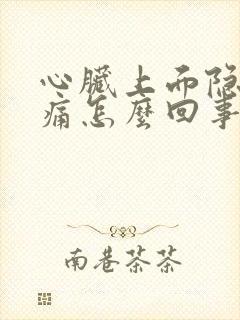 心臟上而隐
痛怎麼回事
南巷茶茶